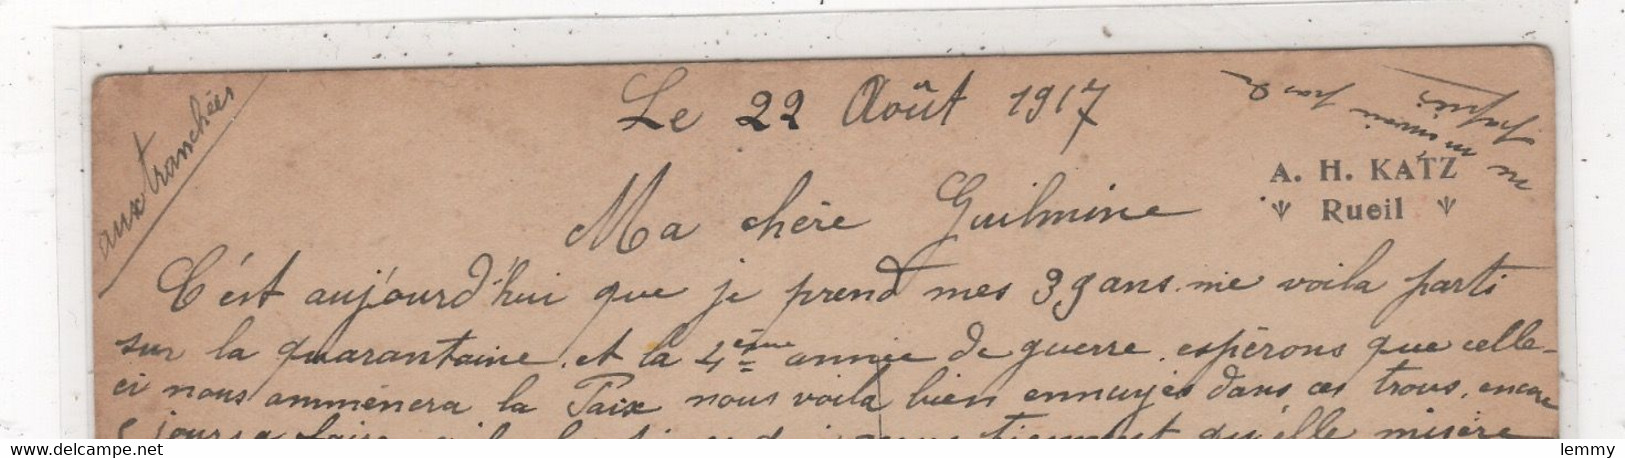 aux tranchées
Le 22 Août 1917
A. H. KATZ
Rueil
Ma chère Guilmine
C'est aujourd'hui que je prend mes 39 ans. me voila parti
sur la quarantaine. et la 4ème année de guerre. espérons que celle-
ci nous ammènera la Paix nous voila bien ennuyés dans ces trous. encore
jours a faire qu'elle misère
delcampe.net
lemmy